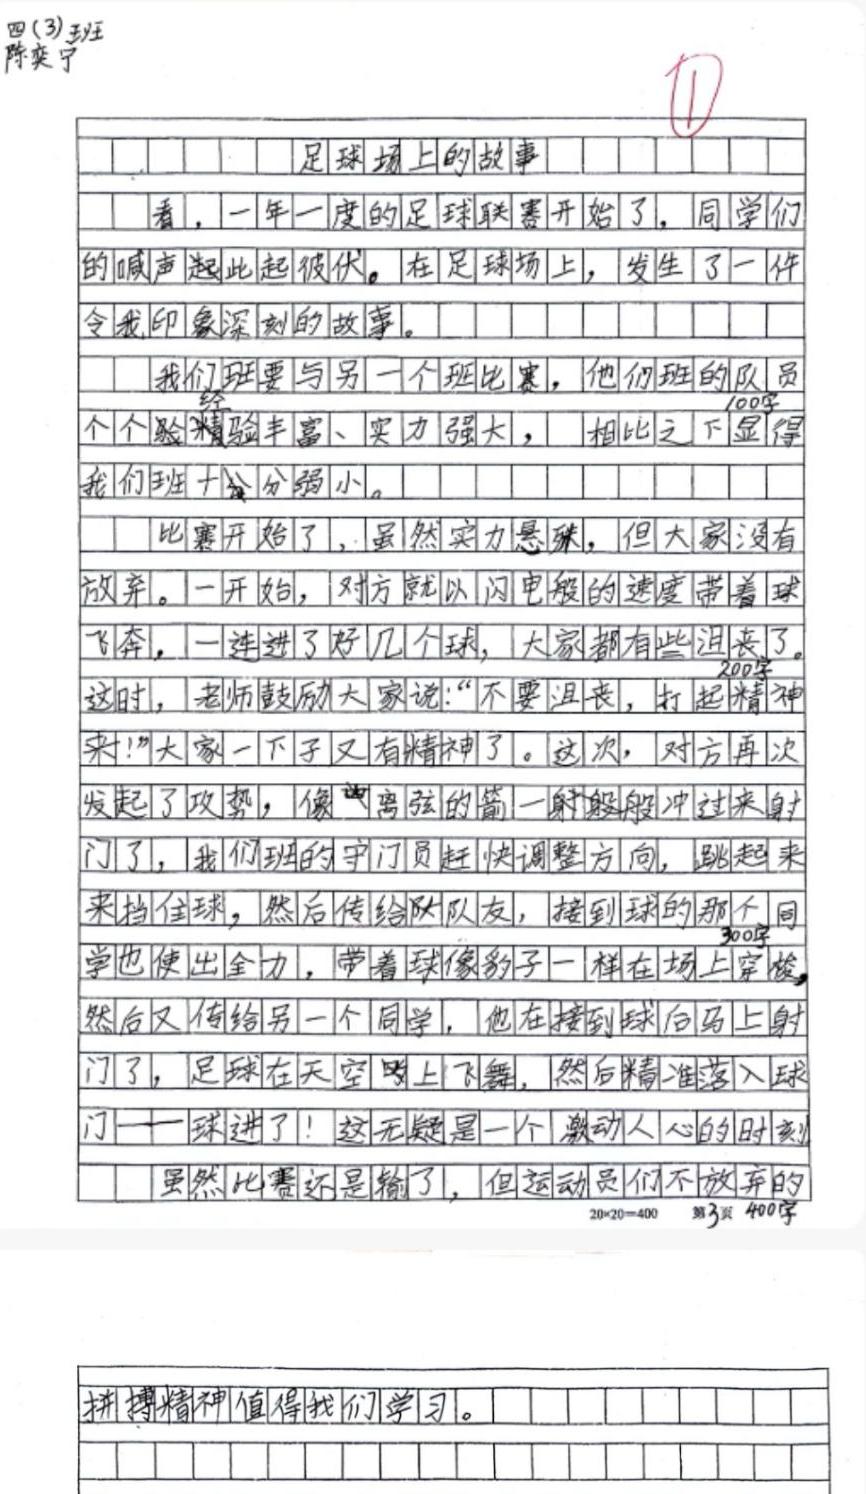 四(3)班
陈奕宁
①
足球场上的故事
看，一年一度的足球联赛开始了，同学们
的喊声起此起彼伏。在足球场上，发生了一件
令我印象深刻的故事。
我们班要与另一个班比赛，他们班的队员
经
100字
个个验精验丰富、实力强大，相比之下显得
我们班十分分弱小。
比赛开始了，虽然实力悬殊，但大家没有
放弃。一开始，对方就以闪电般的速度带着球
飞奔，一连进了好几个球，大家都有些沮丧了。
200字
这时，老师鼓励大家说：“不要沮丧，打起精神
来！”大家一下子又有精神了。这次，对方再次
发起了攻势，像离弦的箭一射般般冲过来射
门了，我们班的守门员赶快调整方向，跳起来
来挡住球，然后传给队队友，接到球的那个同
300字
学也使出全力，带着球像豹子一样在场上穿梭，
然后又传给另一个同学，他在接到球后马上射
门了，足球在天空上飞舞，然后精准落入球
门——球进了！这无疑是一个激动人心的时刻
虽然比赛还是输了，但运动员们不放弃的
20×20=400 第3页 400字
拼搏精神值得我们学习。